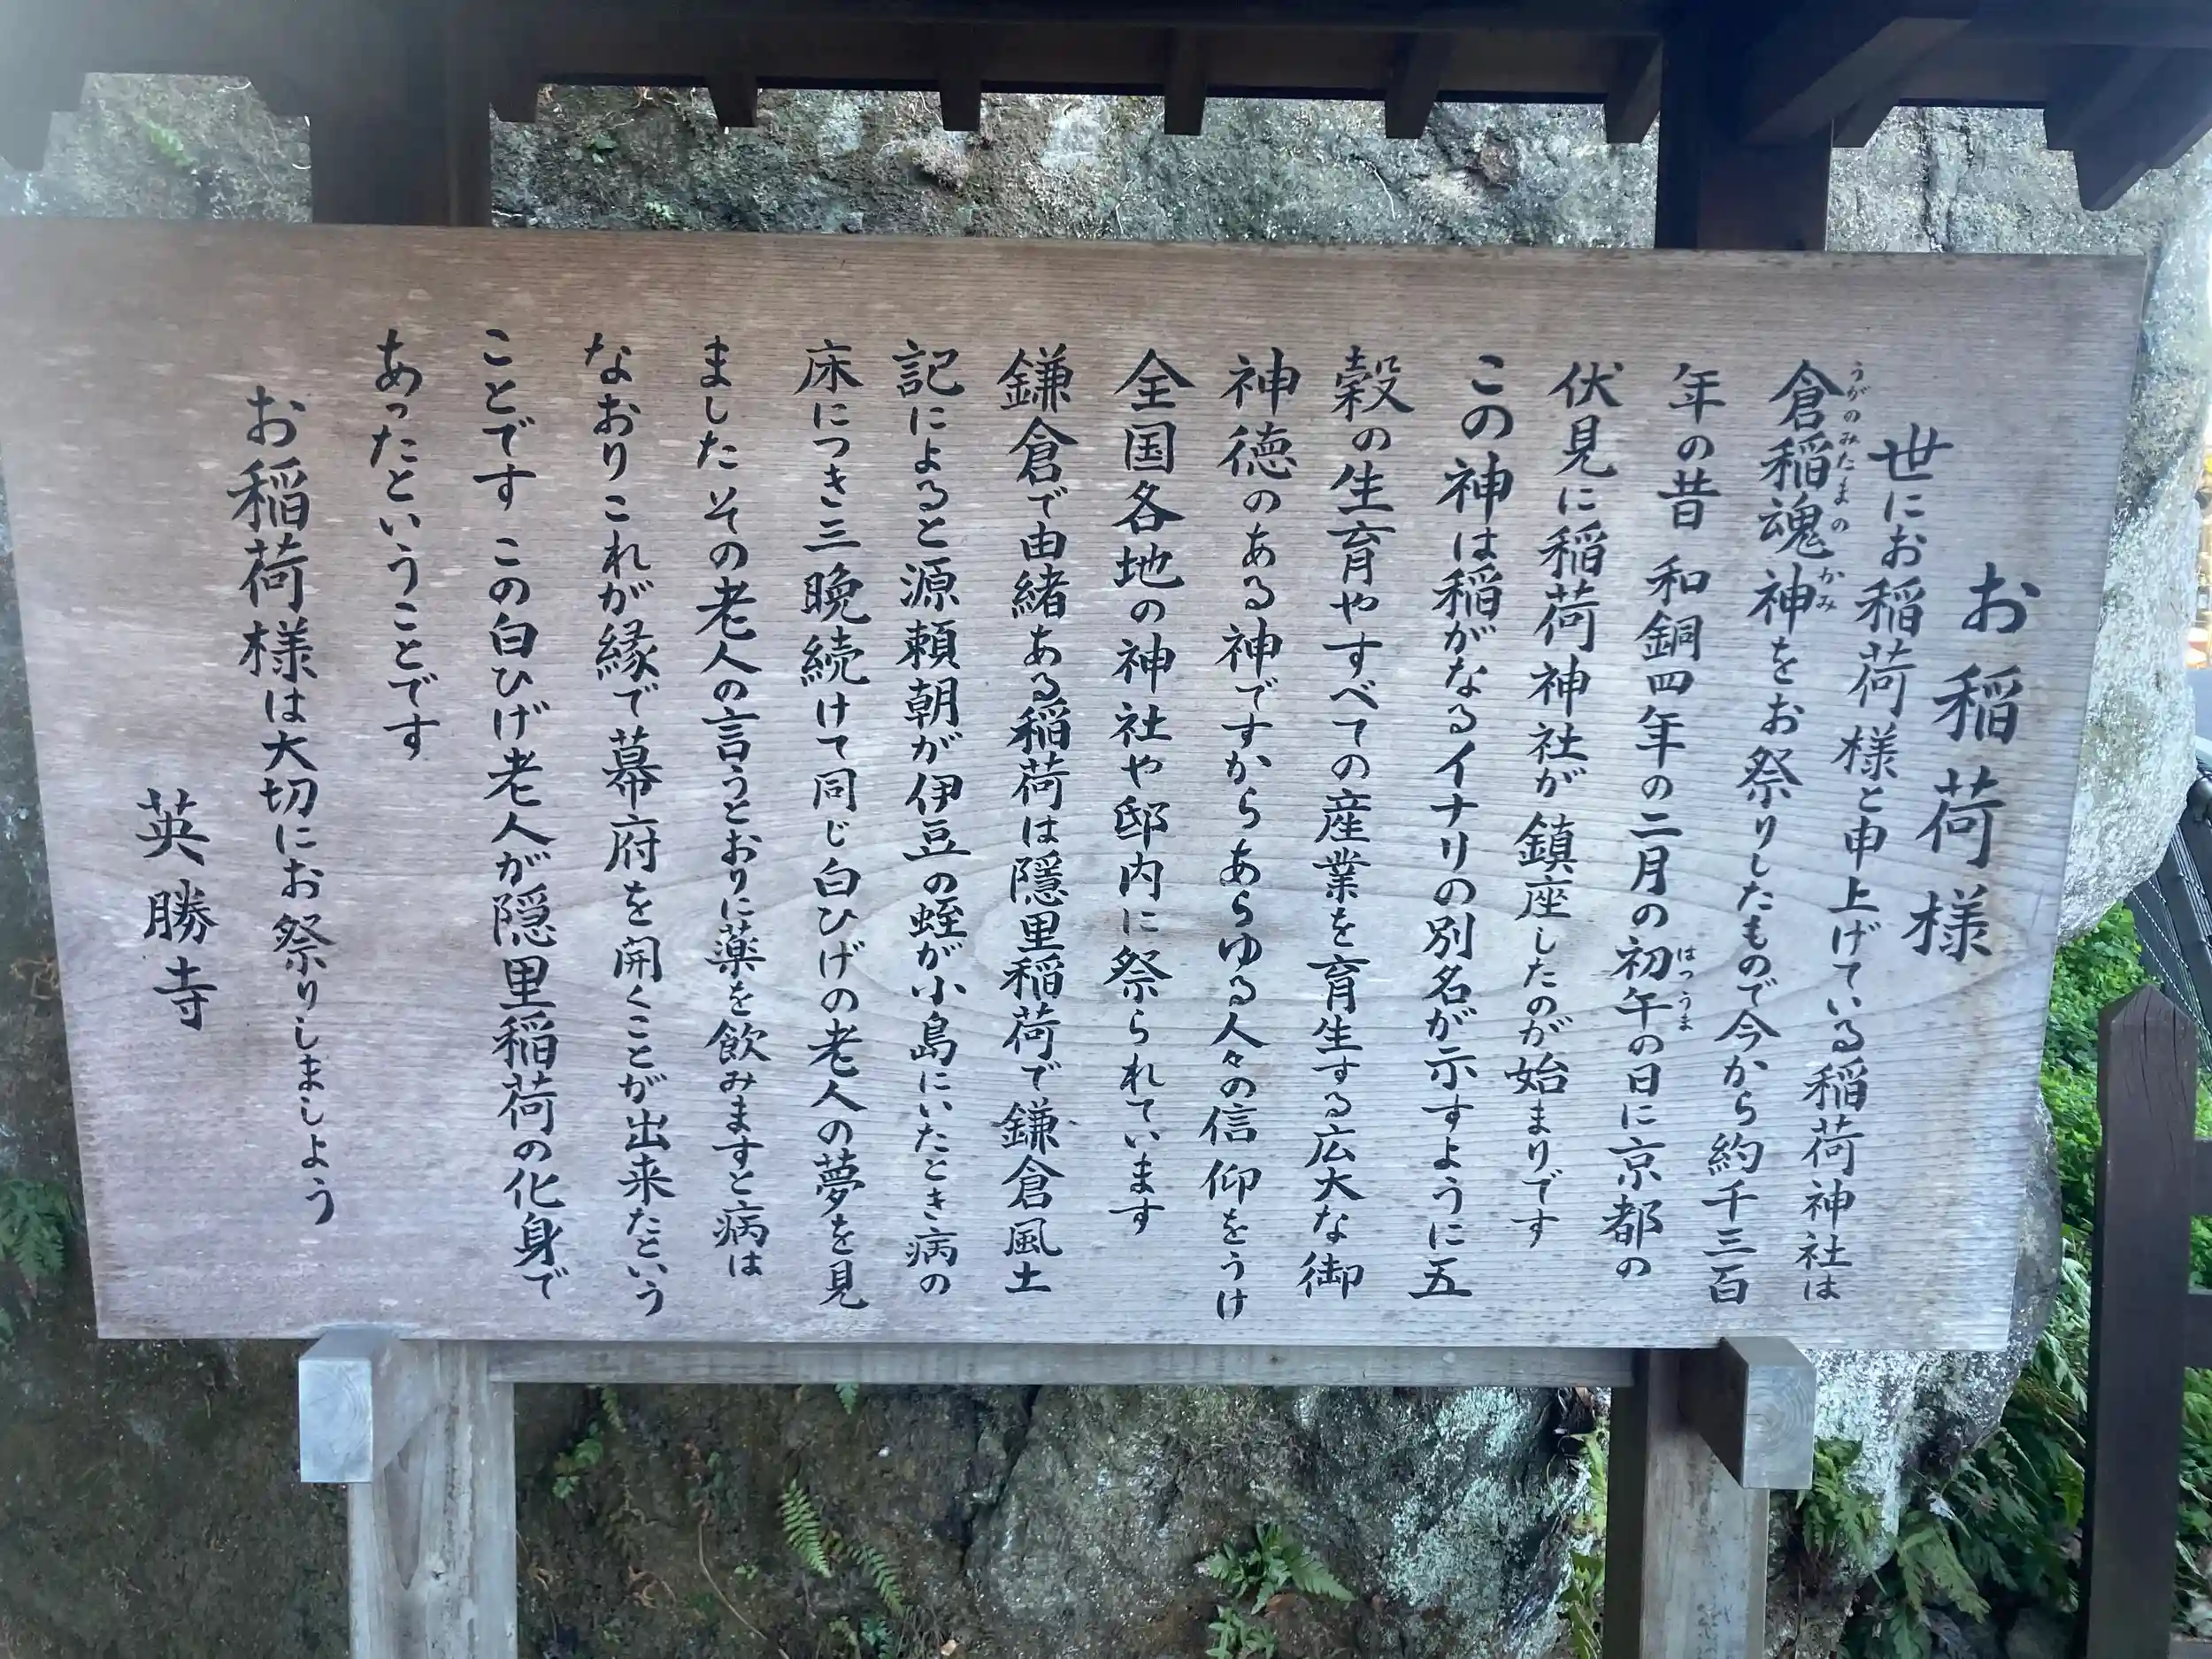 お稲荷様
世にお稲荷様と申上げている稲荷神社は
倉稲魂神をお祭りしたもので今から約千三百
うがのみたまのかみ
年の昔 和銅四年の二月の初午の日に京都の
はつうま
伏見に稲荷神社が鎮座したのが始まりです
この神は稲がなるイナリの別名が示すように五
穀の生育やすべての産業を育生する広大な御
神徳のある神ですからあらゆる人々の信仰をうけ
全国各地の神社や邸内に祭られています
鎌倉で由緒ある稲荷は隠里稲荷で鎌倉風土
記によると源頼朝が伊豆の蛭が小島にいたとき病の
床につき三晩続けて同じ白ひげの老人の夢を見
ました その老人の言うとおりに薬を飲みますと病は
なおりこれが縁で幕府を開くことが出来たという
ことです この白ひげ老人が隠里稲荷の化身で
あったということです
お稲荷様は大切にお祭りしましよう
英勝寺